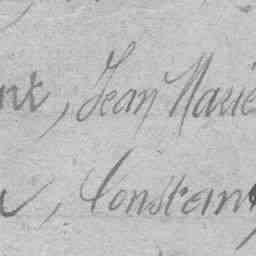 , Jean Marie
, Constant